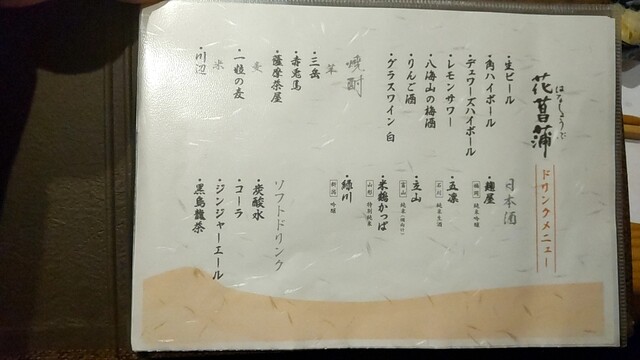 はなしょうぶ
花菖蒲
ドリンクメニュー
・生ビール
・角ハイボール
・デュワーズハイボール
・レモンサワー
・八海山の梅酒
・りんご酒
・グラスワイン 白
焼酎
芋
・三岳
・赤兎馬
・薩摩茶屋
麦
・一粒の麦
米
・川辺
日本酒
・麹屋
純米吟醸
・五凛
石川 純米生酒
・立山
富山 純米
・米鶴かっぱ
山形 特別純米
・緑川
新潟 吟醸
ソフトドリンク
・炭酸水
・コーラ
・ジンジャーエール
・黒烏龍茶